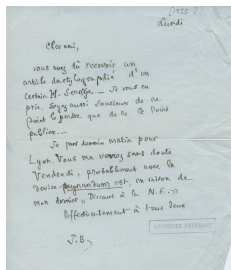 (1933 ?)
Lundi
Cher ami,
vous avez dû recevoir un
article dactylographié d'un
certain M. — Je vous en
prie, soyez aussi soucieux de ne
point le perdre que de ne le point
publier —
Je pars demain matin pour
Lyon. Vous me verrez sans doute
Vendredi, probablement avec la
devise pugnandum est, en raison de
mon dernier « Discours à la N. E. »
Affectueusement à tous deux
J. B.
ARCHIVES PAULHAN